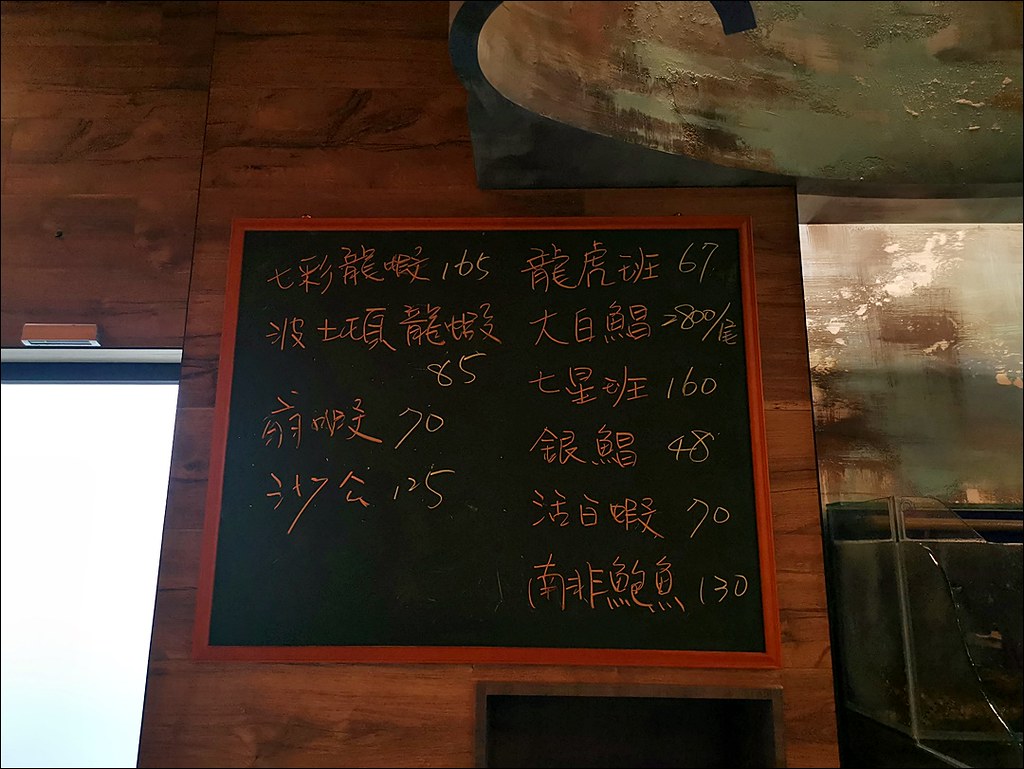 七彩龍蝦 165
波士頓龍蝦
85
扇蝦 70
沙公 125
龍虎班 67
大白鯧 2800/尾
七星班 160
銀鯧 48
活白蝦 70
南非鮑魚 130